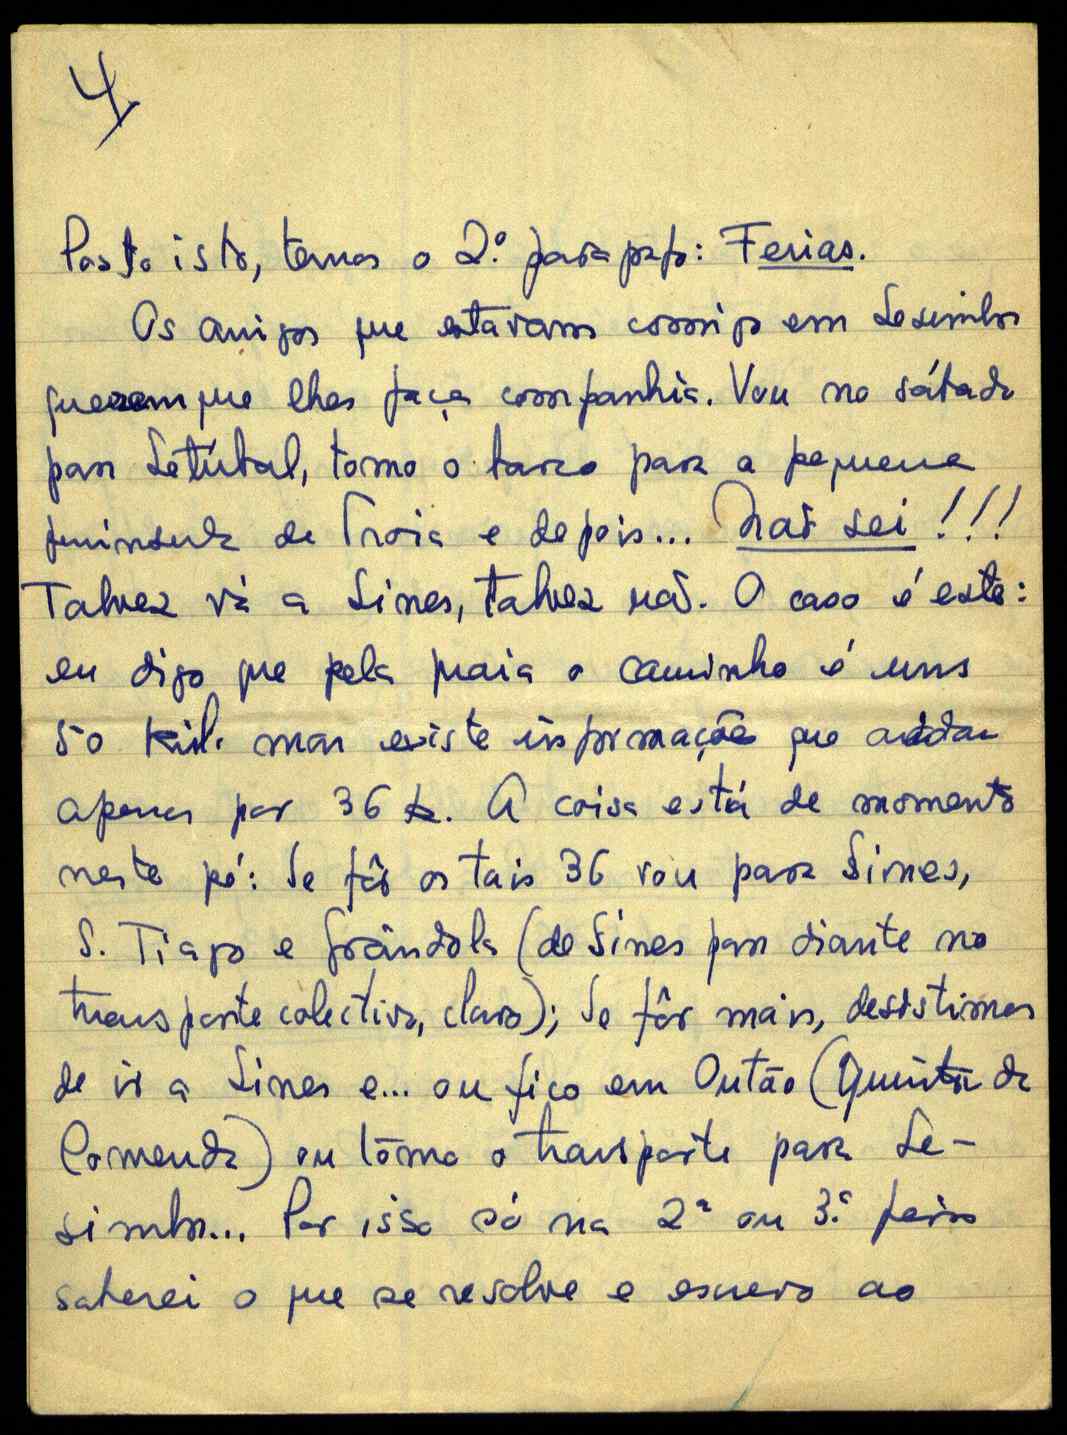 4
Posto isto, temos o 2º paragrafo: Ferias.
Os amigos que estavam comigo em Sesimbra
querem que lhes faça companhia. Vou no sábado
para Setúbal, tomo o barco para a pequena
peninsula de Troia e depois... Não sei!!!
Talvez vá a Sines, talvez não. O caso é este:
eu digo que pela praia o caminho é uns
50 kil. mas existe informações que andam
apenas por 36 k. A coisa está de momento
neste pé: Se fôr os tais 36 vou para Sines,
S. Tiago e Grândola (de Sines para diante no
transporte colectivo, claro); Se fôr mais, desistimos
de ir a Sines e... ou fico em Outão (Quinta da
Comenda) ou tômo o transporte para Se-
simbra... Por isso só na 2ª ou 3ª feira
saberei o que se resolve e escrevo ao